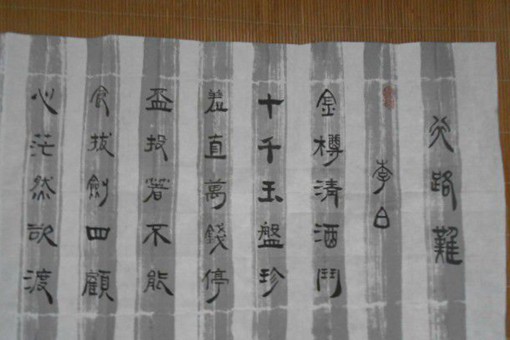 行路難
李白
金樽清酒鬥
十千玉盤珍
羞直萬錢停
盃投箸不能
食拔劍四顧
心茫然欲渡